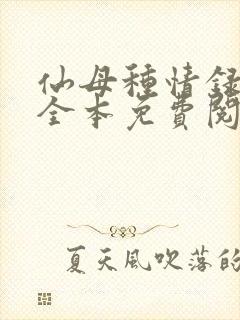 仙母種情録
全本免費閱
夏天風吹落的